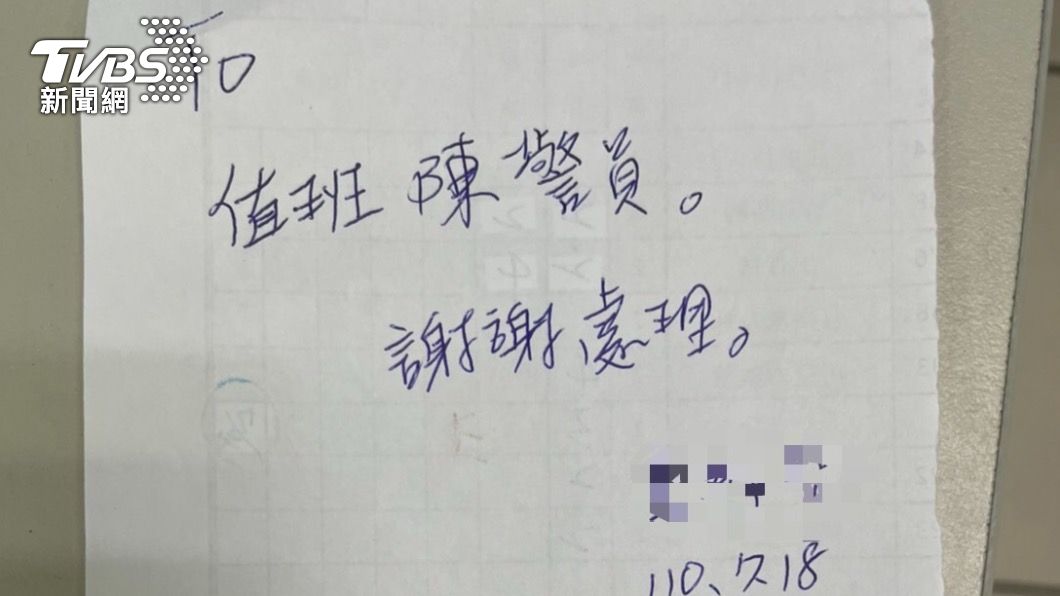 TVBS
新聞網
TO
值班 陳警員。
謝謝處理。
110、7.18